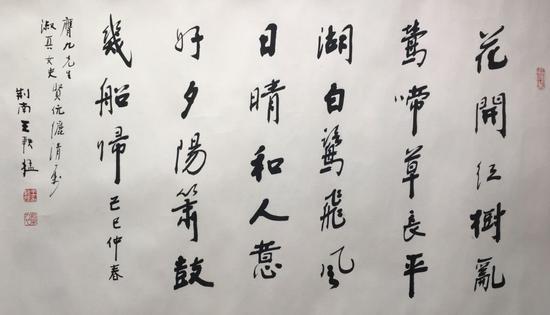 花開紅樹亂
鶯啼草長平
湖白鷺飛風
日晴和人意
好夕陽簫鼓
幾船歸 己巳仲春
膺九先生
淑真女史 賢伉儷清
荆南王